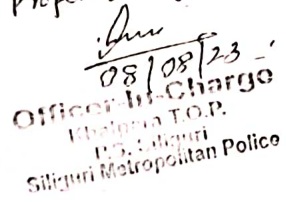 08/08/23
Officer-in-Charge
Khalpara T.O.P.
P.S. Siliguri
Siliguri Metropolitan Police